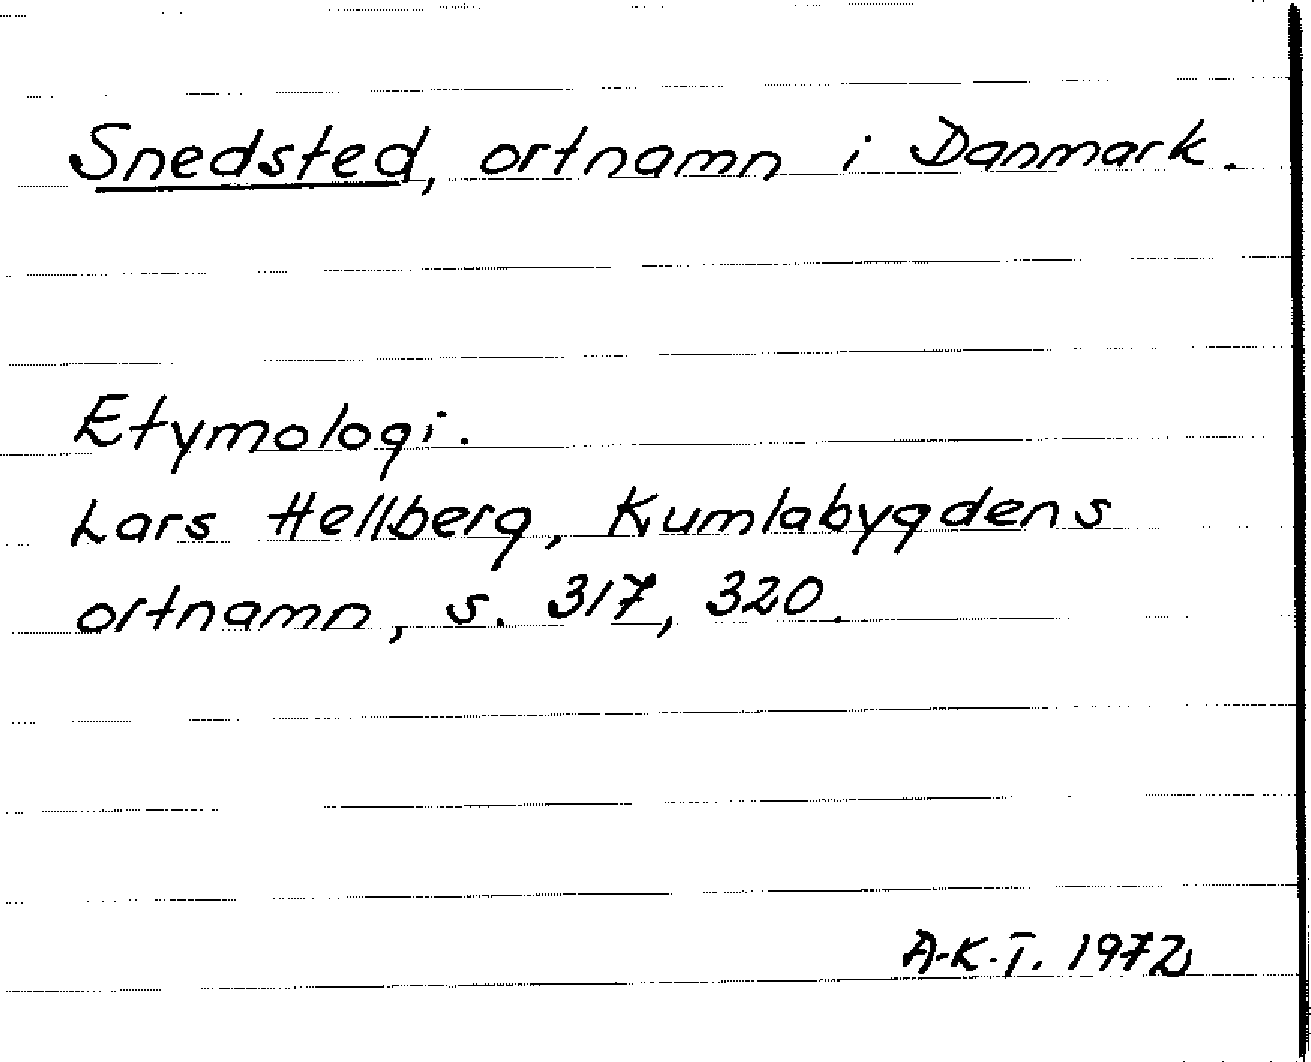 Snedsted, ortnamn i Danmark.
Etymologi.
Lars Hellberg, Kumlabygdens
ortnamn, s. 317, 320.
A-K.T. 1972